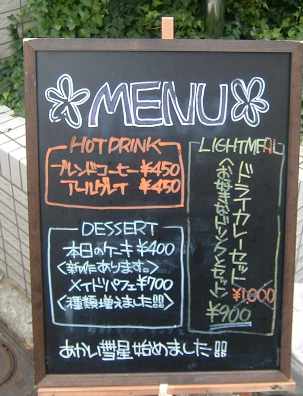 MENU
HOT DRINK
ブレンドコーヒー ¥450
アールグレイ ¥450
DESSERT
本日のケーキ ¥400
〈新作あります。〉
メイドパフェ ¥700
〈種類増えました!!〉
LIGHTMEAL
ドライカレーセット
〈お好きなドリンクセット〉
¥1,000
¥900
あかい彗星始めました!!